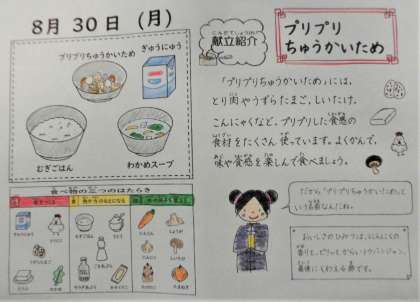 8月30日(月)
プリプリちゅうかいため
ぎゅうにゅう
むぎごはん
わかめスープ
食べ物の三つのはたらき
献立紹介
プリプリ
ちゅうかいため
「プリプリちゅうかいため」には、
とり肉やうずらたまご、しいたけ、
こんにゃくなど、プリプリした食感の
食材をたくさん使っています。よくかんで、
味や食感を楽しんで食べましょう。
だから「プリプリちゅうかいため」と
いう名前なんだね。
おいしさのひみつは、にんにくの
香りと、ピリッとからいトウバンジャン。
最後にくわえる酢です。